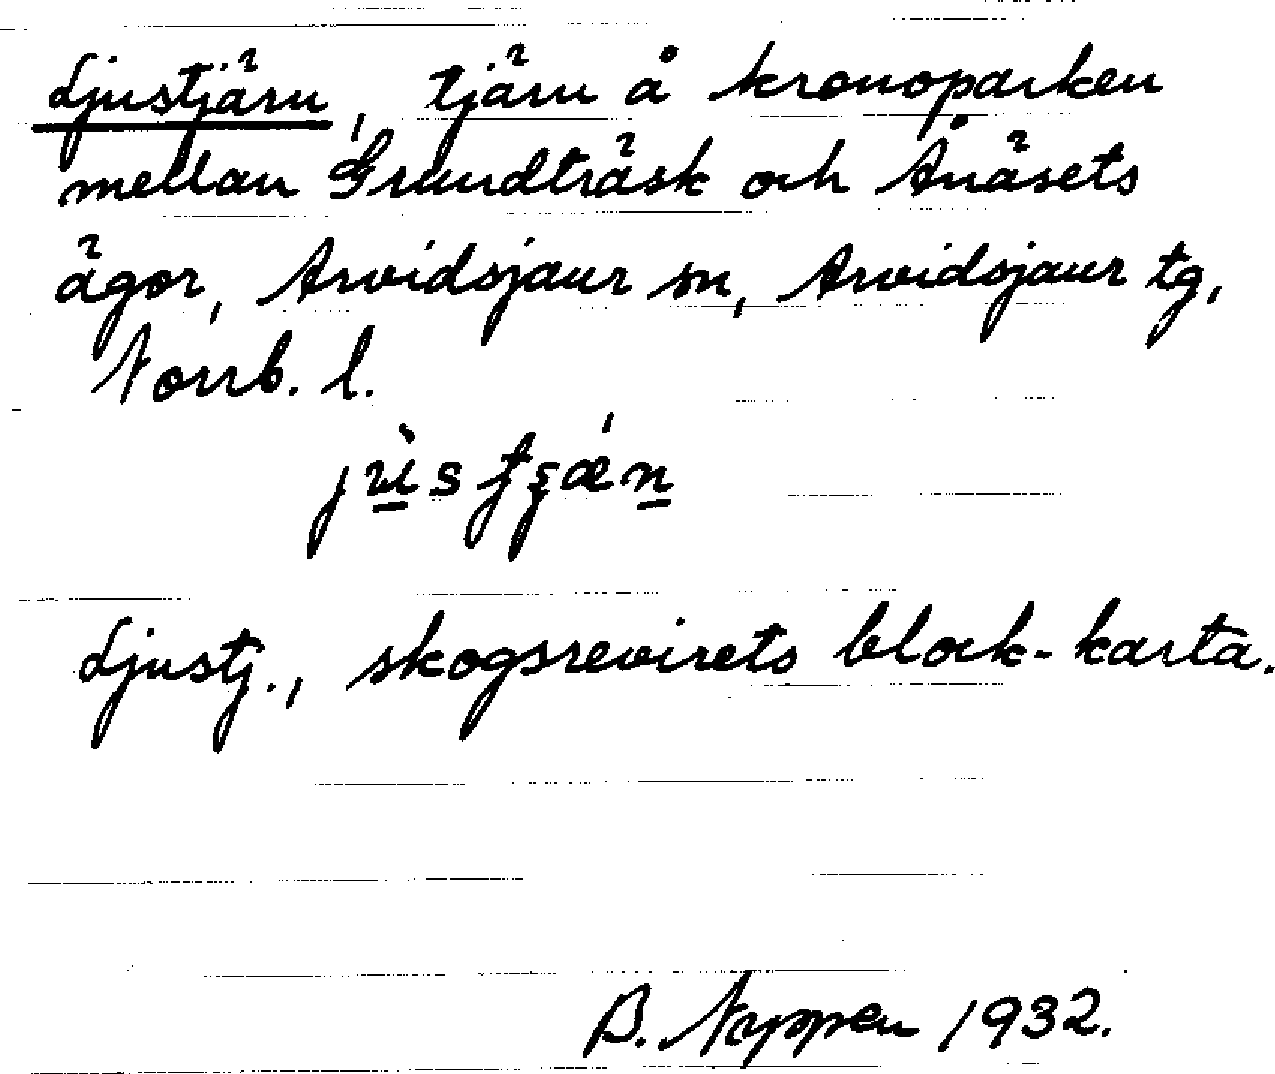 Ljustjärn, tjärn å kronoparken
mellan Grundträsk och Ånäsets
ägor, Arvidsjaur sn, Arvidsjaur tg,
Norrb. l.
Ljustj., skogsrevirets block-karta.
B. Nyppen 1932.